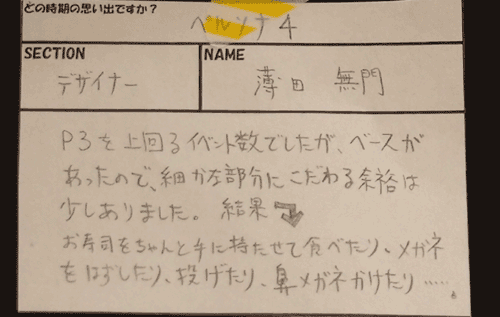 どの時期の思い出ですか？
ペルソナ4
SECTION
デザイナー
NAME
薄田 無門
P3を上回るイベント数でしたが、ベースが
あったので、細かな部分にこだわる余裕は
少しありました。 結果
お寿司をちゃんと手に持たせて食べたり、メガネ
をはずしたり、投げたり、鼻メガネかけたり……